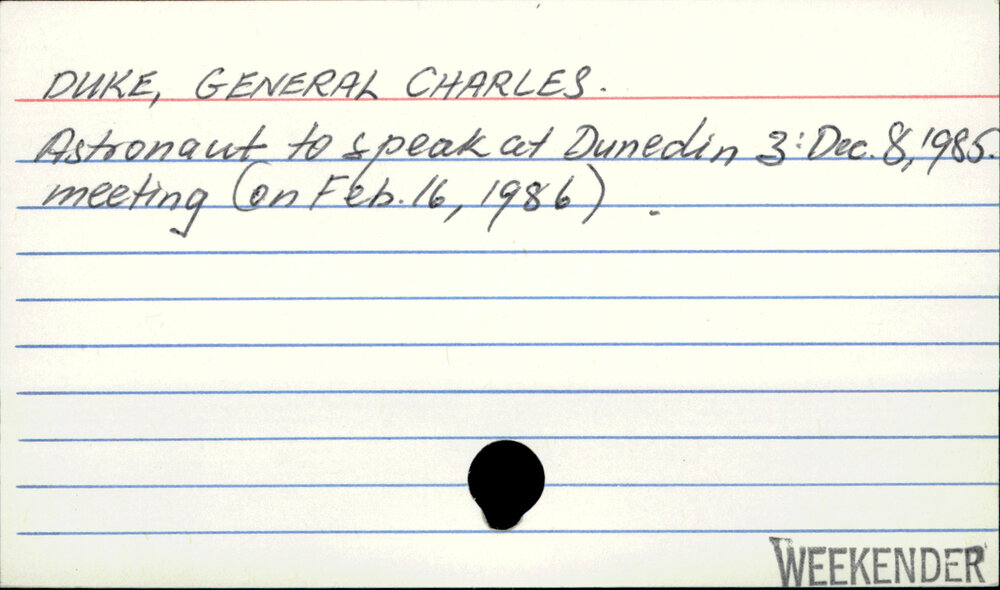 DUKE, GENERAL CHARLES.
Astronaut to speak at Dunedin 3:Dec. 8, 1985.
meeting (on Feb. 16, 1986) .
WEEKENDER